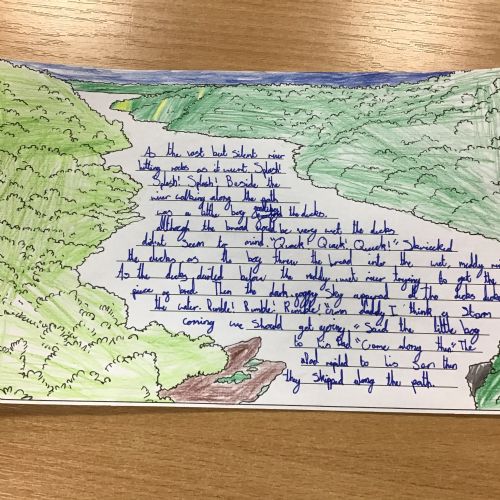 As the vast but silent river
hitting rocks as it went Splash!
Splash! Splash! Beside the
river walking along the path
was a little boy the ducks.
although the bread would be very wet the ducks
didnt seem to mind. "Quack! Quack! Quack!" Shriecked
the duckes as the boy threw the bread into the wet, muddy
As the ducks darted before the muddy wet river trying to get the
piece of bread. Then the dark, Sky appeared all the ducks
the water. Rumble! Rumble! Rumble! daddy I think a Storm
coming we Should get going," Said the little boy
to his Dad "Come along then" The
dad replied to his Son then
they Skipped along the path.